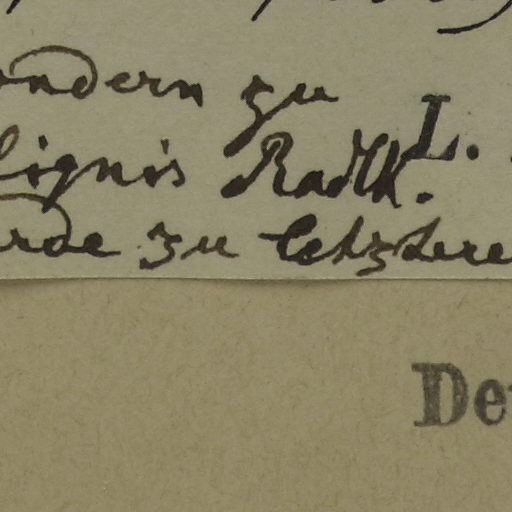 ondern zu
L.
lignis Radlk.
rde zu letztere
De